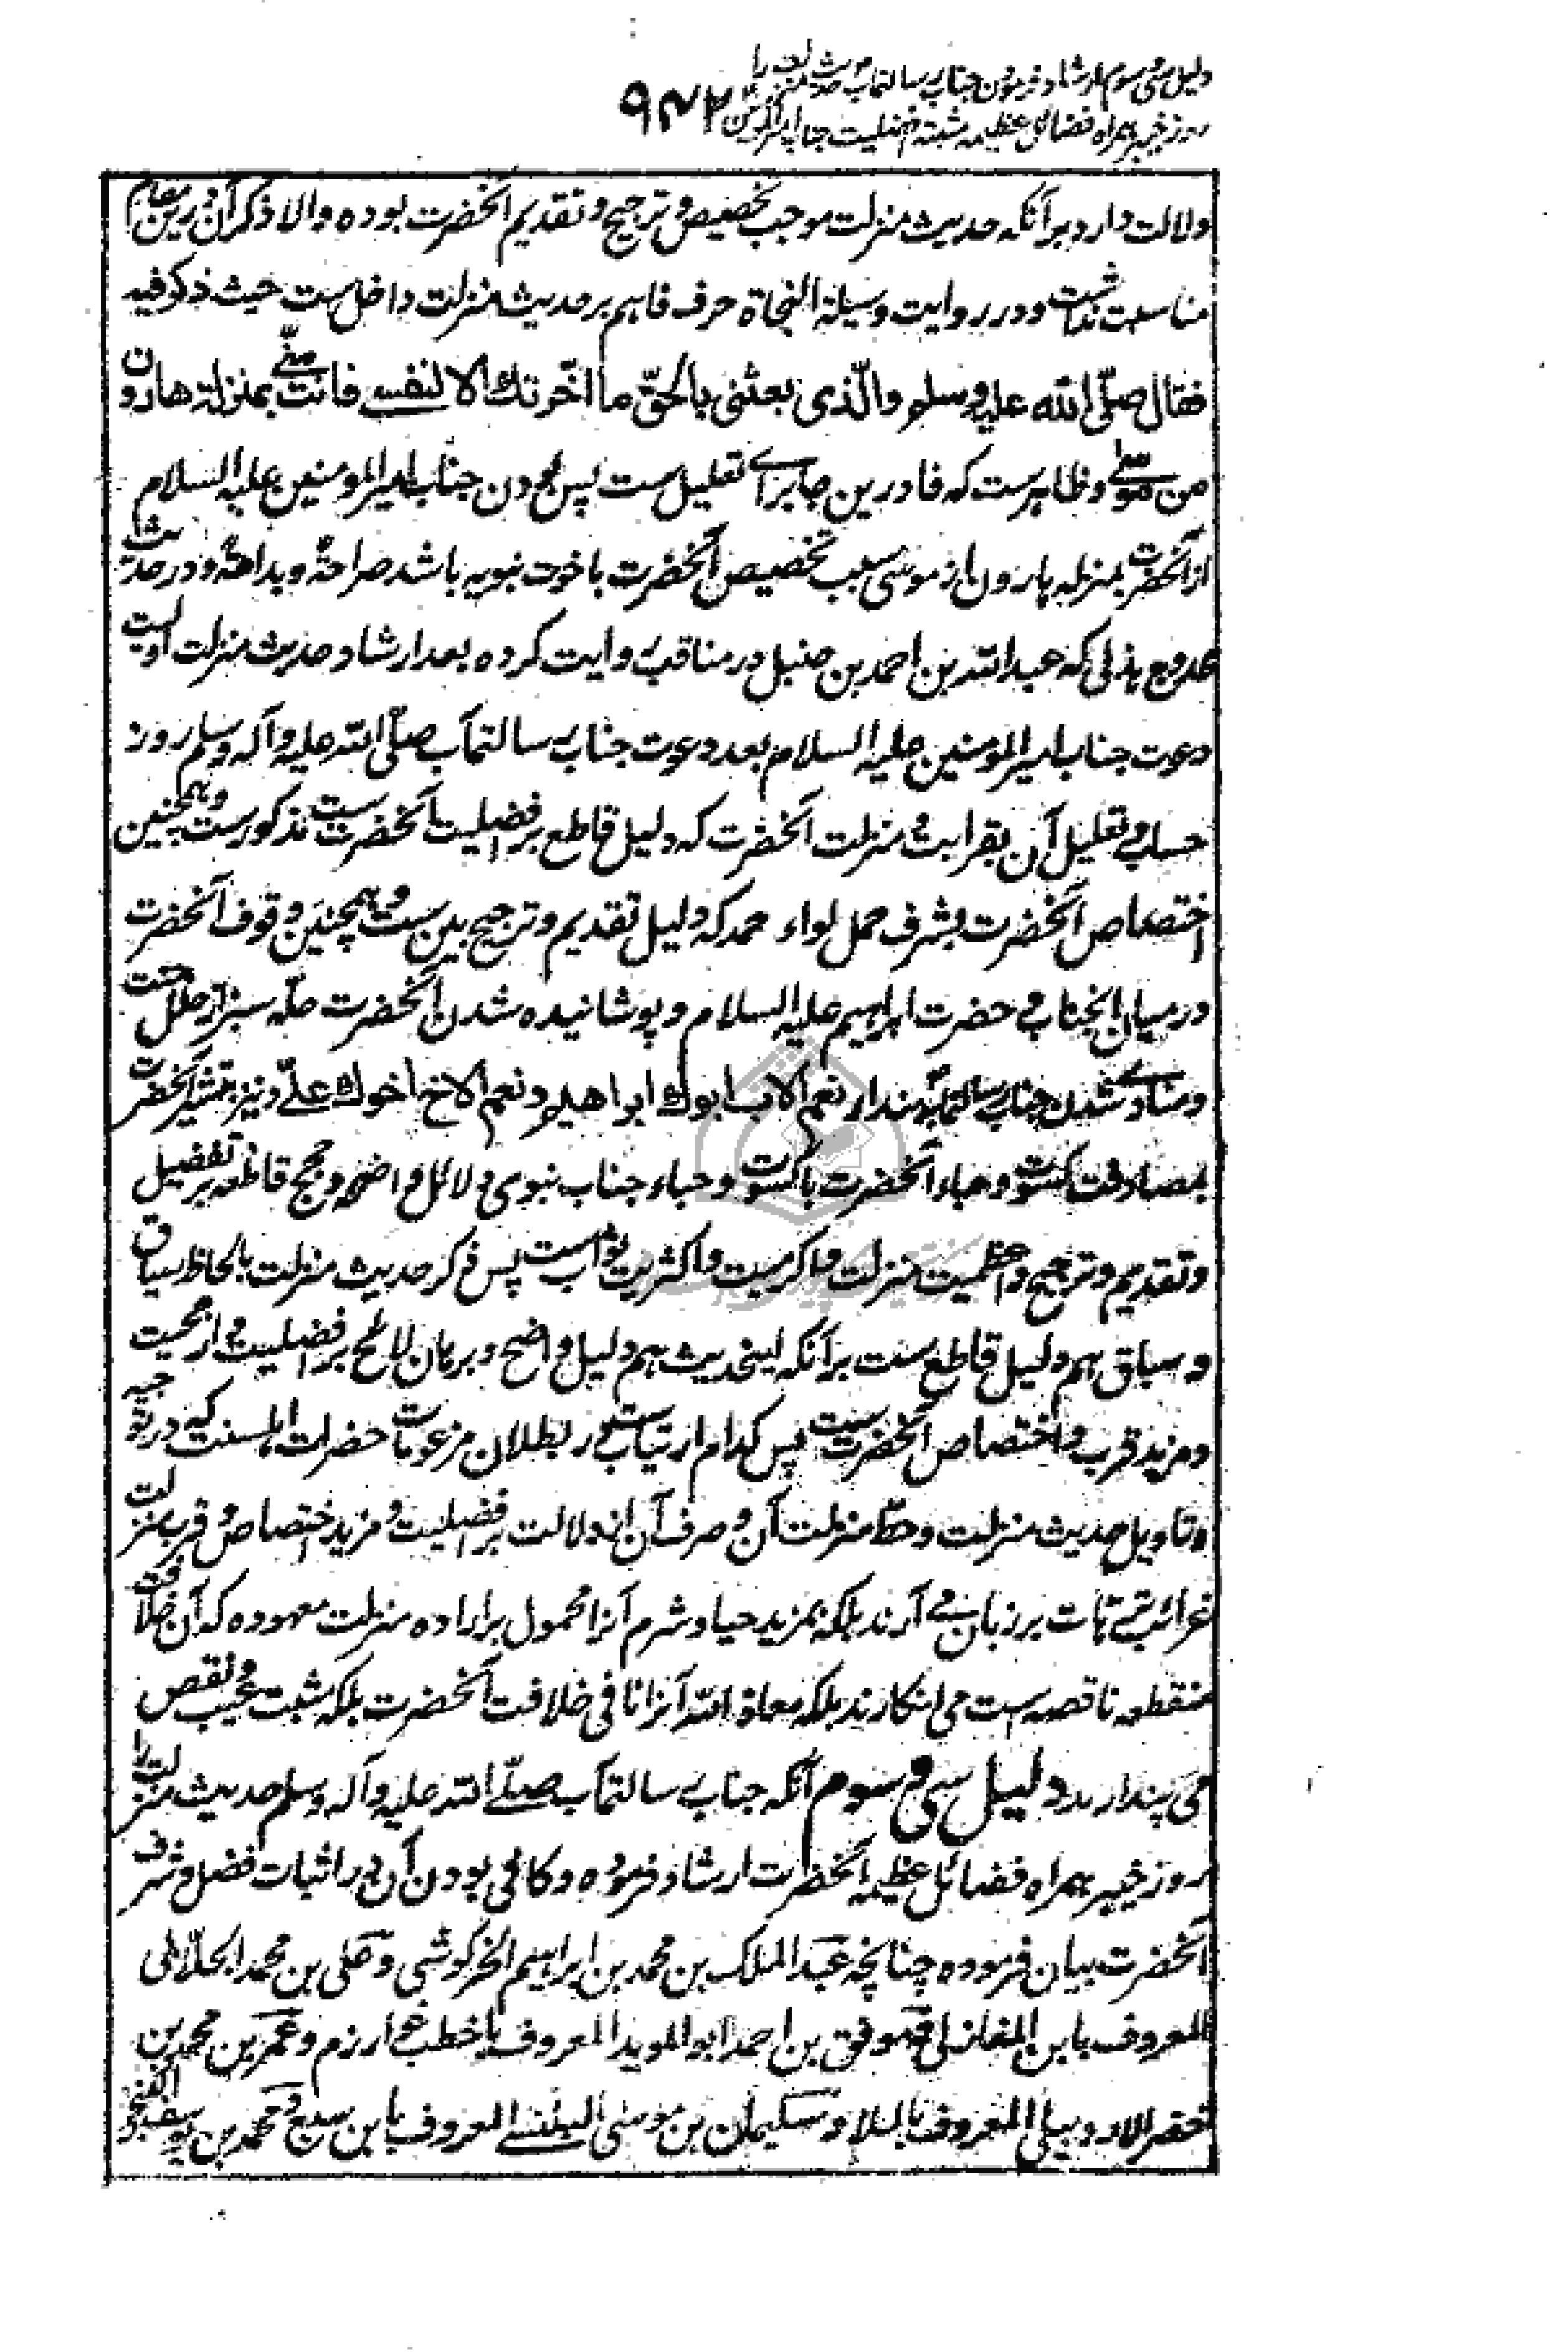 دلیل سی و سوم ارشاد فرمودن جناب رسالتمآب حدیث منزلت را
روز خیبر همراه فضائل عظیمه مثبته افضلیت جناب امیرالمؤمنین ۹۴۲
دلالت دارد بر آنکه حدیث منزلت موجب تخصیص و ترجیح و تقدیم آنحضرت بوده والا ذکر آن درین مقام
مناسبت نداشت و در روایت وسیلة النجاة حرف فا هم بر حدیث منزلت داخل ست حیث ذکر فیه
فقال صلّی الله علیه وسلم والّذی بعثنی بالحقّ ما اخّرتك الا لنفسی فانت منّی بمنزلة هارون
من موسی و ظاهرست که فا درین جا برای تعلیل ست پس بودن جناب امیرالمؤمنین علیه السلام
از آنحضرت بمنزله هارون از موسی سبب تخصیص آنحضرت باخوت نبویه باشد صراحةً و بداهةً و در حدیث
محدوج هذلی که عبدالله بن احمد بن حنبل در مناقب روایت کرده بعد ارشاد حدیث منزلت اولیت
دعوت جناب امیرالمؤمنین علیه السلام بعد دعوت جناب رسالتمآب صلّی الله علیه و آله وسلم روز
حساب و تعلیل آن بقرابت و منزلت آنحضرت که دلیل قاطع بر افضلیت آنحضرت ست مذکورست و همچنین
اختصاص آنحضرت بشرف حمل لواء حمد که دلیل تقدیم و ترجیح بین ست و همچنین وقوف آنحضرت
در میان آنجناب و حضرت ابراهیم علیه السلام و پوشانیده شدن آنحضرت حلّه سبز از حلل جنت
و منادی شدن جناب رسالتمآب بنداء نعم الاب ابوك ابراهیم و نعم الاخ اخوك علیّ و نیز تبشیر آنحضرت
بمصادفت کسوت و حباء آنحضرت با کسوت و حباء جناب نبوی دلائل واضحه و حجج قاطعه بر تفضیل
و تقدیم و ترجیح و اعظمیت منزلت و اکرمیت و اکثریت ثواب ست پس ذکر حدیث منزلت بالحاظ سیاق
و سباق هم دلیل قاطع ست بر آنکه اینحدیث هم دلیل واضح و برهان لائح بر افضلیت و ارجحیت
و مزید قرب و اختصاص آنحضرت ست پس کدام ارتیاب ست در بطلان مزعومات حضرات اهلسنت که در توجیه
و تاویل حدیث منزلت و حطّ منزلت آن و صرف آن از دلالت بر افضلیت و مزید اختصاص و قرب منزلت
غرائب ترّهات بر زبان می آرند بلکه بمزید حیا و شرم آنرا محمول بر اراده منزلت معهوده که آن خلافت
منقطعه ناقصه ست می انگارند بلکه معاذ الله آنرا نافی خلافت آنحضرت بلکه مثبت عیب و نقص
می پندارند دلیل سی و سوم آنکه جناب رسالتمآب صلّی الله علیه و آله وسلم حدیث منزلت را
روز خیبر همراه فضائل عظیمه آنحضرت ارشاد فرموده و کافی بودن آن در اثبات فضل و شرف
آنحضرت بیان فرموده چنانچه عبدالملک بن محمد بن ابراهیم الخرکوشی و علی بن محمد الجلّابی
المعروف بابن المغازلی و موفق بن احمد ابوالموید المعروف باخطب خوارزم و عمر بن محمد بن
خضر الاردبیلی المعروف بالملا و سلیمان بن موسی البلنسی المعروف بابن سبع و محمد بن یوسف الکنجی